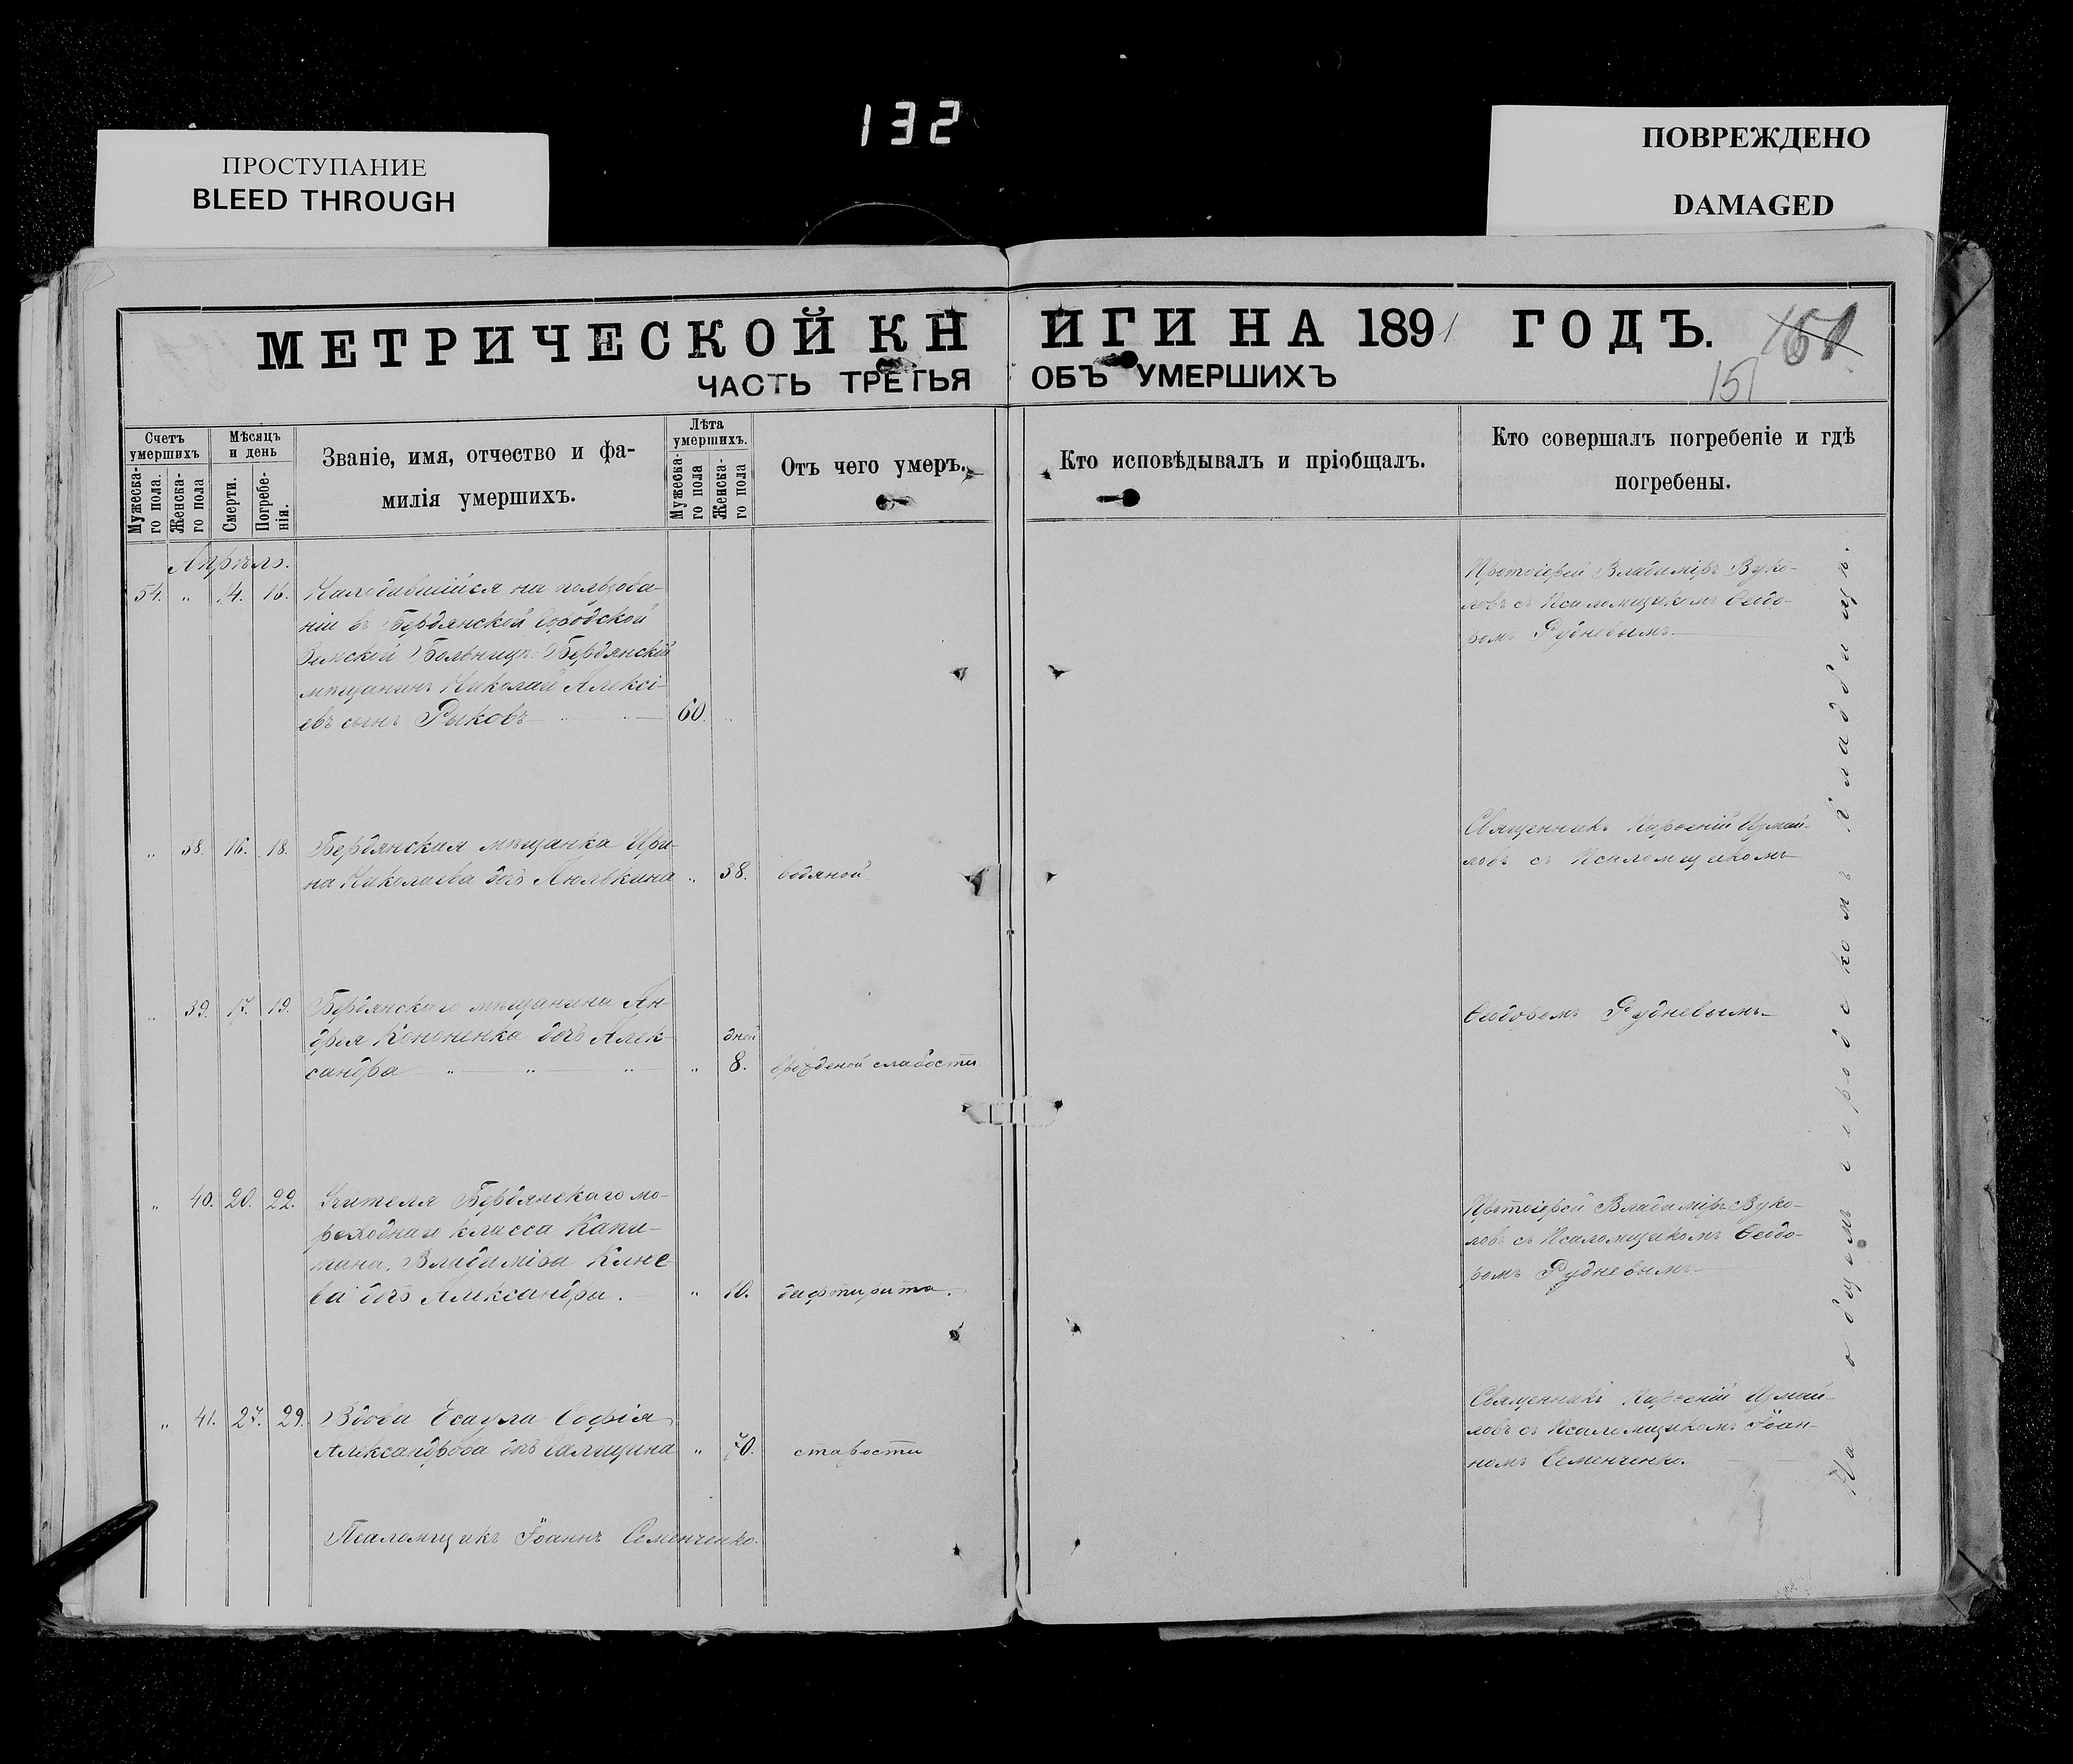 132
ПРОСТУПАНИЕ
BLEED THROUGH
ПОВРЕЖДЕНО
DAMAGED
МЕТРИЧЕСКОЙ КНИГИ НА 1891 ГОДЪ.
151
ЧАСТЬ ТРЕТЬЯ ОБЪ УМЕРШИХЪ
Счетъ умершихъ
Мужеска-го пола.
Женска-го пола
Мѣсяцъ и день
Смерти.
Погребе-нія.
Званіе, имя, отчество и фа-
милія умершихъ.
Лѣта умершихъ.
Мужеска-го пола
Женска-го пола
Отъ чего умеръ.
Кто исповѣдывалъ и пріобщалъ.
Кто совершалъ погребеніе и гдѣ
погребены.
Апрѣль.
54. " 14. 16. Находившійся на пользова-
ніи въ Бердянской Городской
Земской Больницѣ Бердянскій
мѣщанинъ Николай Алексі-
евъ сынъ Рыковъ 60. "
Протоіерей Владиміръ Вуко-
ловъ съ Псаломщикомъ Ѳеодо-
ромъ Рудневымъ
" 38. 16. 18. Бердянская мѣщанка Ири-
на Николаева дочь Люлькина " 38. водяной
Священникъ Парѳеній Измай-
ловъ съ Псаломщикомъ
" 39. 17. 19. Бердянскаго мѣщанина Ан-
дрея Кононенка дочь Алек-
сандра " " " " дней 8. врожденой слабости
Ѳеодоромъ Рудневымъ
" 40. 20. 22. Учителя Бердянскаго мо-
реходнаго класса Капи-
тана Владиміра Клюе
ва дочь Александра. " 10. дифтирита.
Протоіерей Владиміръ Вуко-
ловъ съ Псаломщикомъ Ѳеодо-
ромъ Рудневымъ
" 41. 27. 29. Вдова Есаула Софія
Александрова дочь " 70. старости
Священникъ Парѳеній Измай-
ловъ съ Псаломщикомъ Іоан-
номъ Семенченко.
Псаломщикъ Іоаннъ Семенченко.
На общемъ городскомъ кладбищѣ.